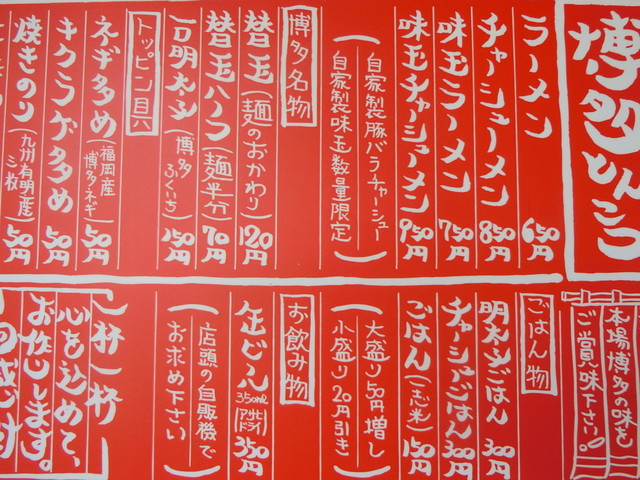 博多とんこつ
ラーメン 650円
チャーシューメン 850円
味玉ラーメン 750円
味玉チャーシューメン 950円
(自家製豚バラチャーシュー
自家製味玉数量限定)
博多名物
替玉(麺のおかわり) 120円
替玉ハーフ(麺半分) 70円
一口明太子(博多ふくいち) 150円
トッピング具
ネギ多め(福岡産博多ネギ) 50円
キクラゲ多め 50円
焼きのり(九州有明産三枚) 50円
本場博多の味を
ご賞味下さい。
ごはん物
明太子ごはん 300円
チャーシューごはん 300円
ごはん 150円
(大盛り50円増し
小盛り20円引き)
お飲み物
缶ビール 350ml アサヒドライ 350円
(店頭の自販機で
お求め下さい)
一杯一杯
心を込めて、
お作りします。